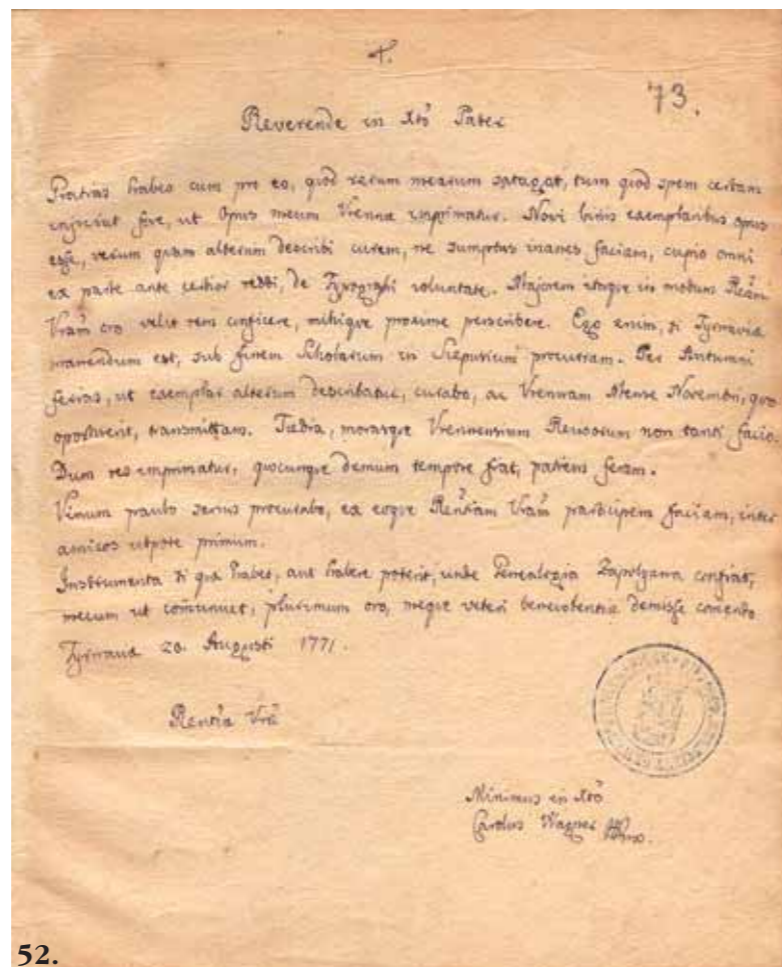 73.
Reverende in Xto Pater
Gratias habeo cum pro eo, quod rerum mearum satagat, tum quod spem certam
injiciat fore, ut Opus meum Viennæ imprimatur. Novi binis exemplaribus opus
esse, verum quam alterum describi curem, ne sumptus inanes faciam, cupio omni
ex parte ante certior reddi, de Typographi voluntate. Majorem itaque in modum Rẽam
Vrãm oro velit rem conficere, mihique proxime perscribere. Ego enim, si Tyrnavia
manendum est, sub finem Scholarum in Scepusium procurram. Per Autumni
ferias, ut exemplar alterum describatur, curabo, ac Viennam Mense Novembri, quo
oportuerit, transmittam. Tædia, morasque Viennensium Revisorum non tanti facio.
Dum res imprimatur, quocunque demum tempore fiat, patiens feram.
Vinum paulo serius procurabo, ex eoque Rẽntiam Vrãm participem faciam, inter
amicos utpote primum.
Instrumenta si qua habet, aut habere poterit, unde Genealogia Zapolyana confiat,
mecum ut com̃unicet, plurimum oro, meque veteri benevolentiæ demisse com̃endo
Tyrnavia 20. Augusti 1771.
Rẽntiæ Vræ
Minimus in Xto
Carolus Wagner
52.